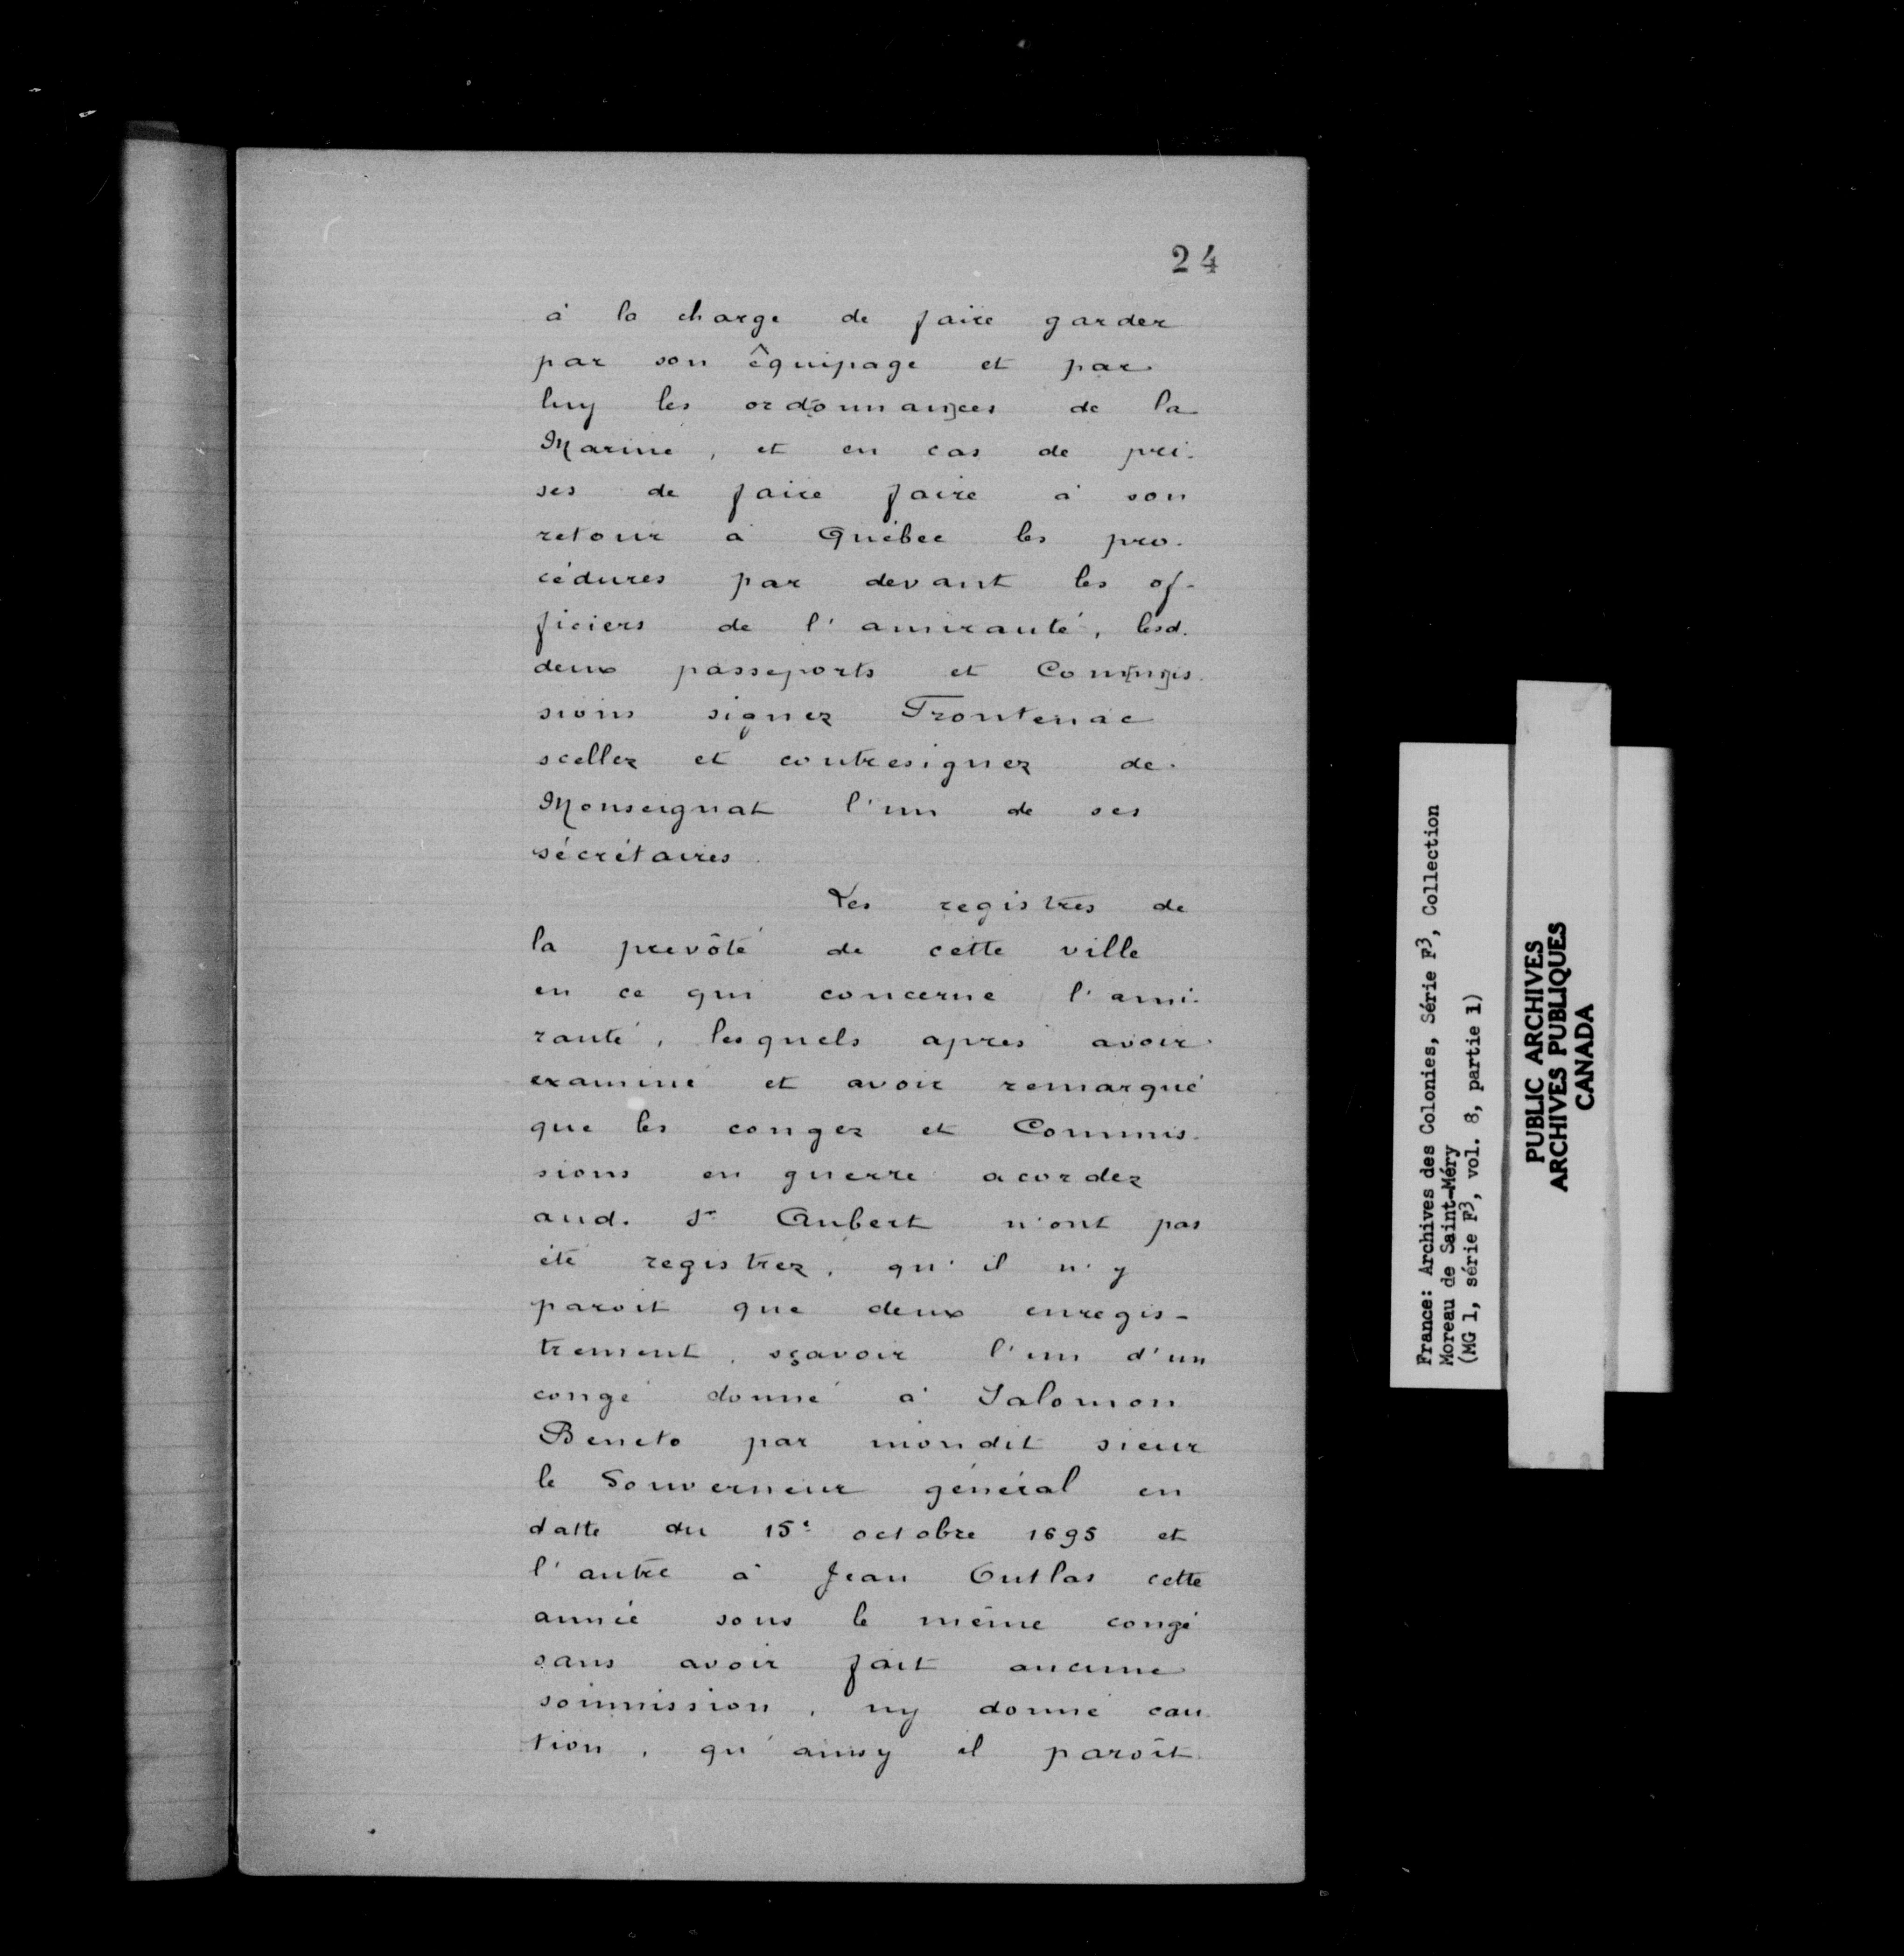 24
à la charge de faire garder
par son êquipage et par
luy les ordonnances de la
Marine, et en cas de pri-
ses de faire faire à son
retour à Québec les pro-
cédures par devant les of-
ficiers de l'amirauté, lesd.
deux passeports et Commis-
sions signez Frontenac
scellez et contresignez de
Monseignat l'un de ses
sécrétaires.
Les registres de
la prevôté de cette ville
en ce qui concerne l'ami-
rauté, lesquels après avoir
examiné et avoir remarqué
que les congez et Commis-
sions en guerre acordez
aud. Sr Aubert n'ont pas
été registrez, qu'il n'y
paroit que deux enregis-
trement, sçavoir l'un d'un
congé donné à Salomon
Beneto par mondit sieur
le Gouverneur général en
datte du 15e octobre 1695 et
l'autre à Jean Outlas cette
année sous le même congé
sans avoir fait aucune
soumission, ny donné cau-
tion, qu'ainsy il paroît
France: Archives des Colonies, Série F3, Collection
Moreau de Saint-Méry
(MG 1, série F3, vol. 8, partie 1)
PUBLIC ARCHIVES
ARCHIVES PUBLIQUES
CANADA